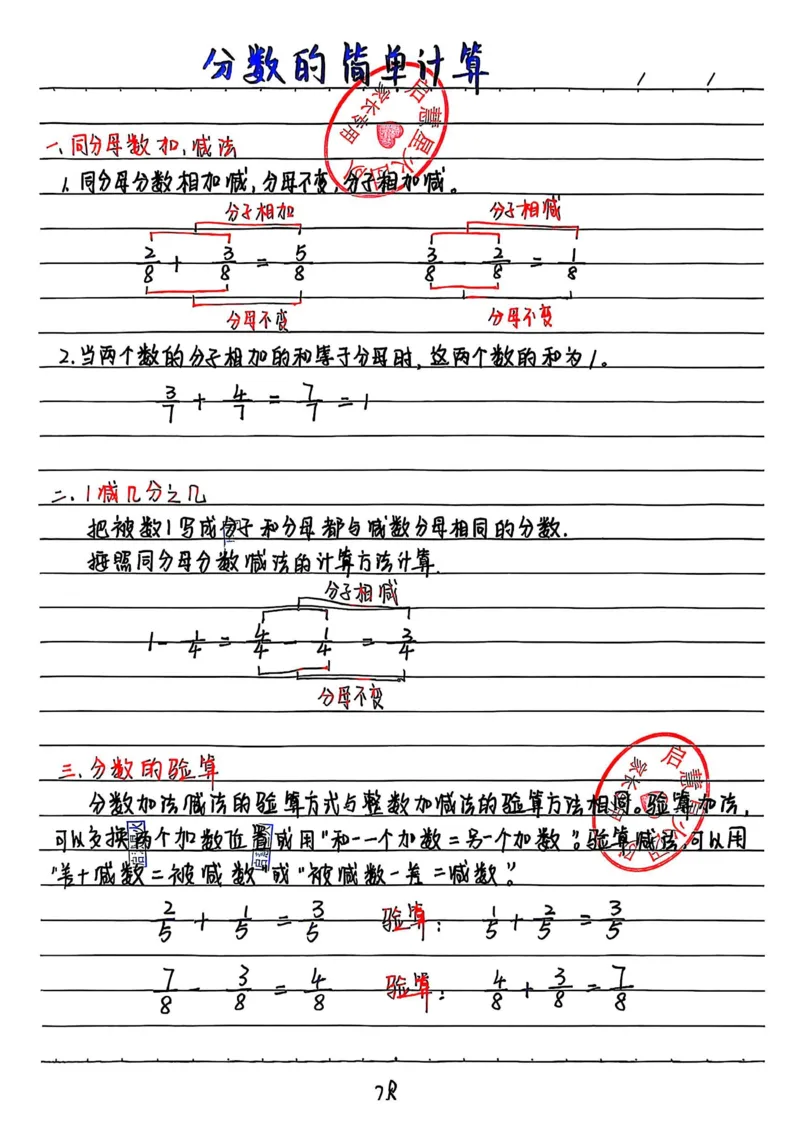 分数的简单计算
一、同分母数加、减法
1. 同分母分数相加减，分母不变，分子相加减。
分子相加 分子相减
2/8 + 3/8 = 5/8 3/8 - 2/8 = 1/8
分母不变 分母不变
2.当两个数的分子相加的和等于分母时，这两个数的和为1。
3/7 + 4/7 = 7/7 = 1
二、1减几分之几
把被数1写成分子和分母都与减数分母相同的分数.
按照同分母分数减法的计算方法计算.
分子相减
1 - 1/4 = 4/4 - 1/4 = 3/4
分母不变
三、分数的验算
分数加法减法的验算方式与整数加减法的验算方法相同。验算加法，
可以交换两个加数位置或用“和-一个加数=另一个加数”。验算减法，可以用
“差+减数=被减数”或“被减数-差=减数”。
2/5 + 1/5 = 3/5 验算： 1/5 + 2/5 = 3/5
7/8 - 3/8 = 4/8 验算： 4/8 + 3/8 = 7/8
启慧星火
家长专用
启慧
家长